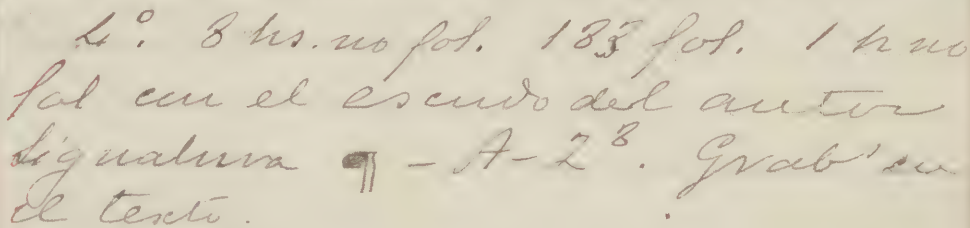 4°. 8 hs. no fol. 183 fol. 1 h no
fol con el escudo del autor
Signatura ¶ - A-Z⁸. Grab' en
el texto.